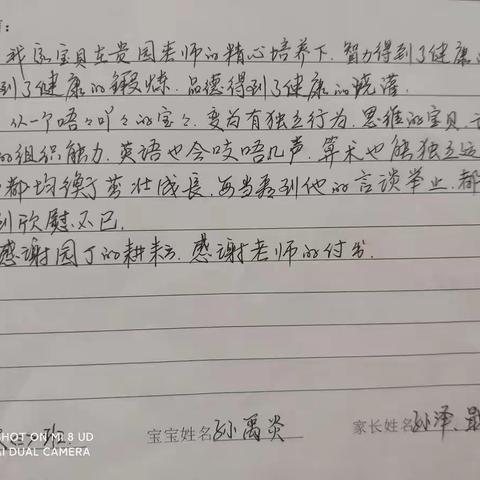 我家宝贝在贵园老师的精心培养下,智力得到了健康
到了健康的锻炼.品德得到了健康的浇灌.
从一个唔々吖々的宝々.变为有独立行为.思维的宝贝.
的组织能力.英语也会咬唔几声.算术也能独立运
都均衡了茁壮成長.每当看到他的言谈举止.都
到欣慰不已.
感谢园丁的耕耘.感谢老师的付出.
班
宝宝姓名 孙禹炎
家长姓名 孙泽
SHOT ON MI 8 UD
AI DUAL CAMERA